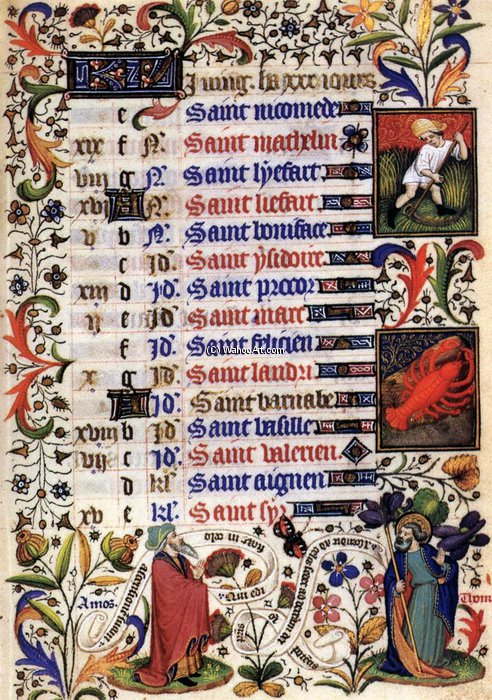 Juing. ha xxx iours
e Saint nicomede
xix f N. Saint mathelin
viii g N. Saint lyefart
xvi A N. Saint liefart
v b N. Saint boniface
c Id. Saint ysidoire
xiii d Id. Saint procor
ii e Id. Saint marc
f Id. Saint felicien
x g Id. Saint laudri
A Id. Saint barnabe
xviii b Id. Saint basille
vii Id. Saint valerien
d kl. Saint aignen
xv e kl. Saint syr
(C) WahooArt.com
Amos.
Qui edi